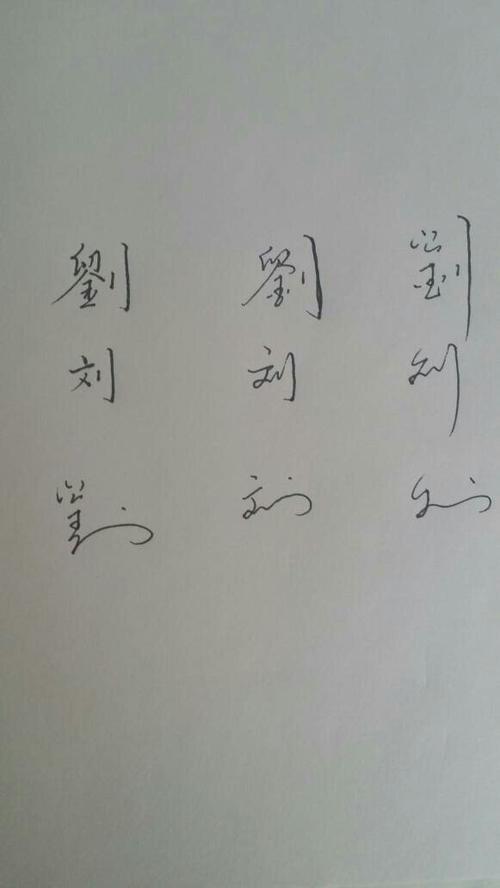 劉 劉 劉
刘 刘 刘
劉 刘 刘